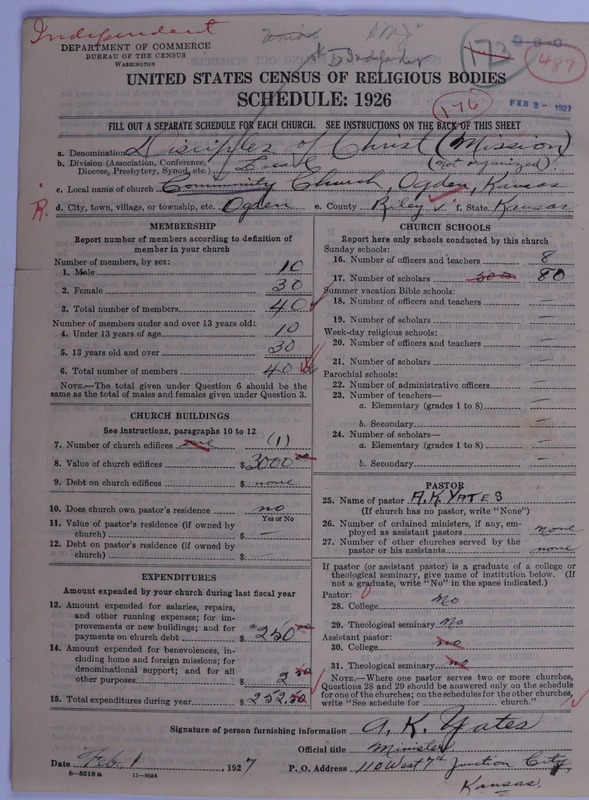 Independent
DEPARTMENT OF COMMERCE
BUREAU OF THE CENSUS
WASHINGTON
173
487
UNITED STATES CENSUS OF RELIGIOUS BODIES
SCHEDULE: 1926
176
FEB 3 - 1927
FILL OUT A SEPARATE SCHEDULE FOR EACH CHURCH. SEE INSTRUCTIONS ON THE BACK OF THIS SHEET
a. Denomination Disciples of Christ (Mission)
b. Division (Association, Conference, Diocese, Presbytery, Synod, etc.) (not organized)
c. Local name of church Community Church, Ogden, Kansas
R.
d. City, town, village, or township, etc. Ogden e. County Riley f. State Kansas
MEMBERSHIP
Report number of members according to definition of
member in your church
Number of members, by sex:
1. Male 10
2. Female 30
3. Total number of members 40
Number of members under and over 13 years old:
4. Under 13 years of age 10
5. 13 years old and over 30
6. Total number of members 40
NOTE.—The total given under Question 6 should be the
same as the total of males and females given under Question 3.
CHURCH BUILDINGS
See instructions, paragraphs 10 to 12
7. Number of church edifices one (1)
8. Value of church edifices $3000.00
9. Debt on church edifices $ none
10. Does church own pastor's residence no
Yes or No
11. Value of pastor's residence (if owned by
church) $ —
12. Debt on pastor's residence (if owned by
church) $ —
EXPENDITURES
Amount expended by your church during last fiscal year
13. Amount expended for salaries, repairs,
and other running expenses; for im-
provements or new buildings; and for
payments on church debt $250.00
14. Amount expended for benevolences, in-
cluding home and foreign missions; for
denominational support; and for all
other purposes $ 2.50
15. Total expenditures during year $252.50
CHURCH SCHOOLS
Report here only schools conducted by this church
Sunday schools:
16. Number of officers and teachers 8
17. Number of scholars 80
Summer vacation Bible schools:
18. Number of officers and teachers —
19. Number of scholars —
Week-day religious schools:
20. Number of officers and teachers —
21. Number of scholars —
Parochial schools:
22. Number of administrative officers —
23. Number of teachers—
a. Elementary (grades 1 to 8) —
b. Secondary —
24. Number of scholars—
a. Elementary (grades 1 to 8) —
b. Secondary —
PASTOR
25. Name of pastor A.K. YATES
(If church has no pastor, write "None")
26. Number of ordained ministers, if any, em-
ployed as assistant pastors none
27. Number of other churches served by the
pastor or his assistants none
If pastor (or assistant pastor) is a graduate of a college or
theological seminary, give name of institution below. (If
not a graduate, write "No" in the space indicated.)
Pastor:
28. College No
29. Theological seminary No
Assistant pastor:
30. College no
31. Theological seminary no
NOTE.—Where one pastor serves two or more churches,
Questions 28 and 29 should be answered only on the schedule
for one of the churches; on the schedules for the other churches,
write "See schedule for ........ church."
Signature of person furnishing information A. K. Yates
Official title Minister
Date Feb. 1, 1927 P. O. Address 110 West 7th Junction City,
8—5518 a 11—9084
Kansas.